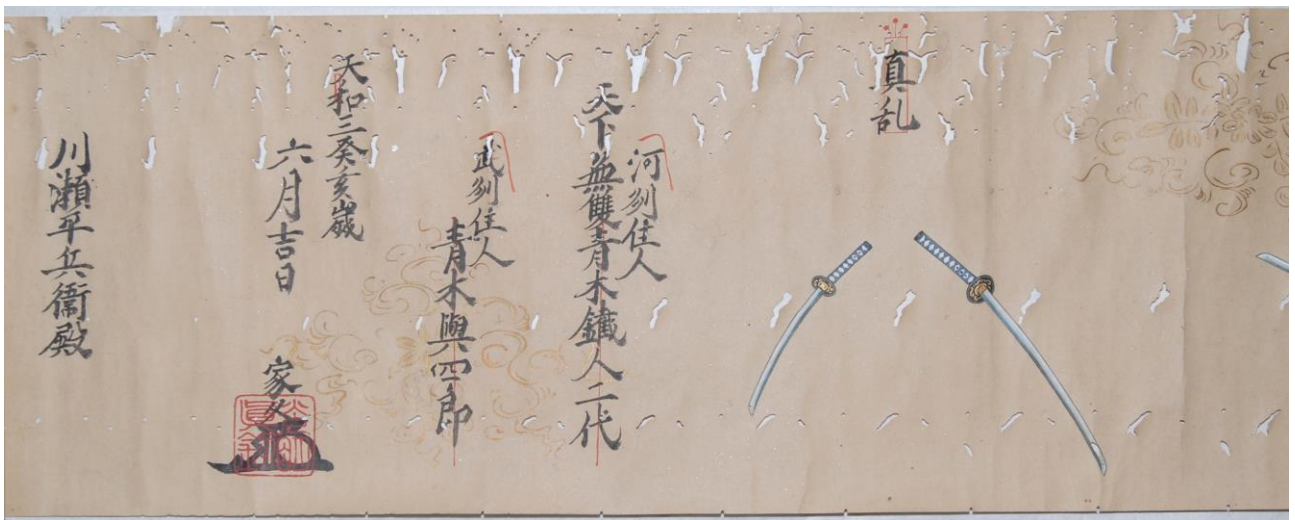 真乱
河刕住人
天下無雙青木鐵人二代
武刕住人
青木與四郎
天和三癸亥歳
六月吉日
家久
川瀬平兵衛殿